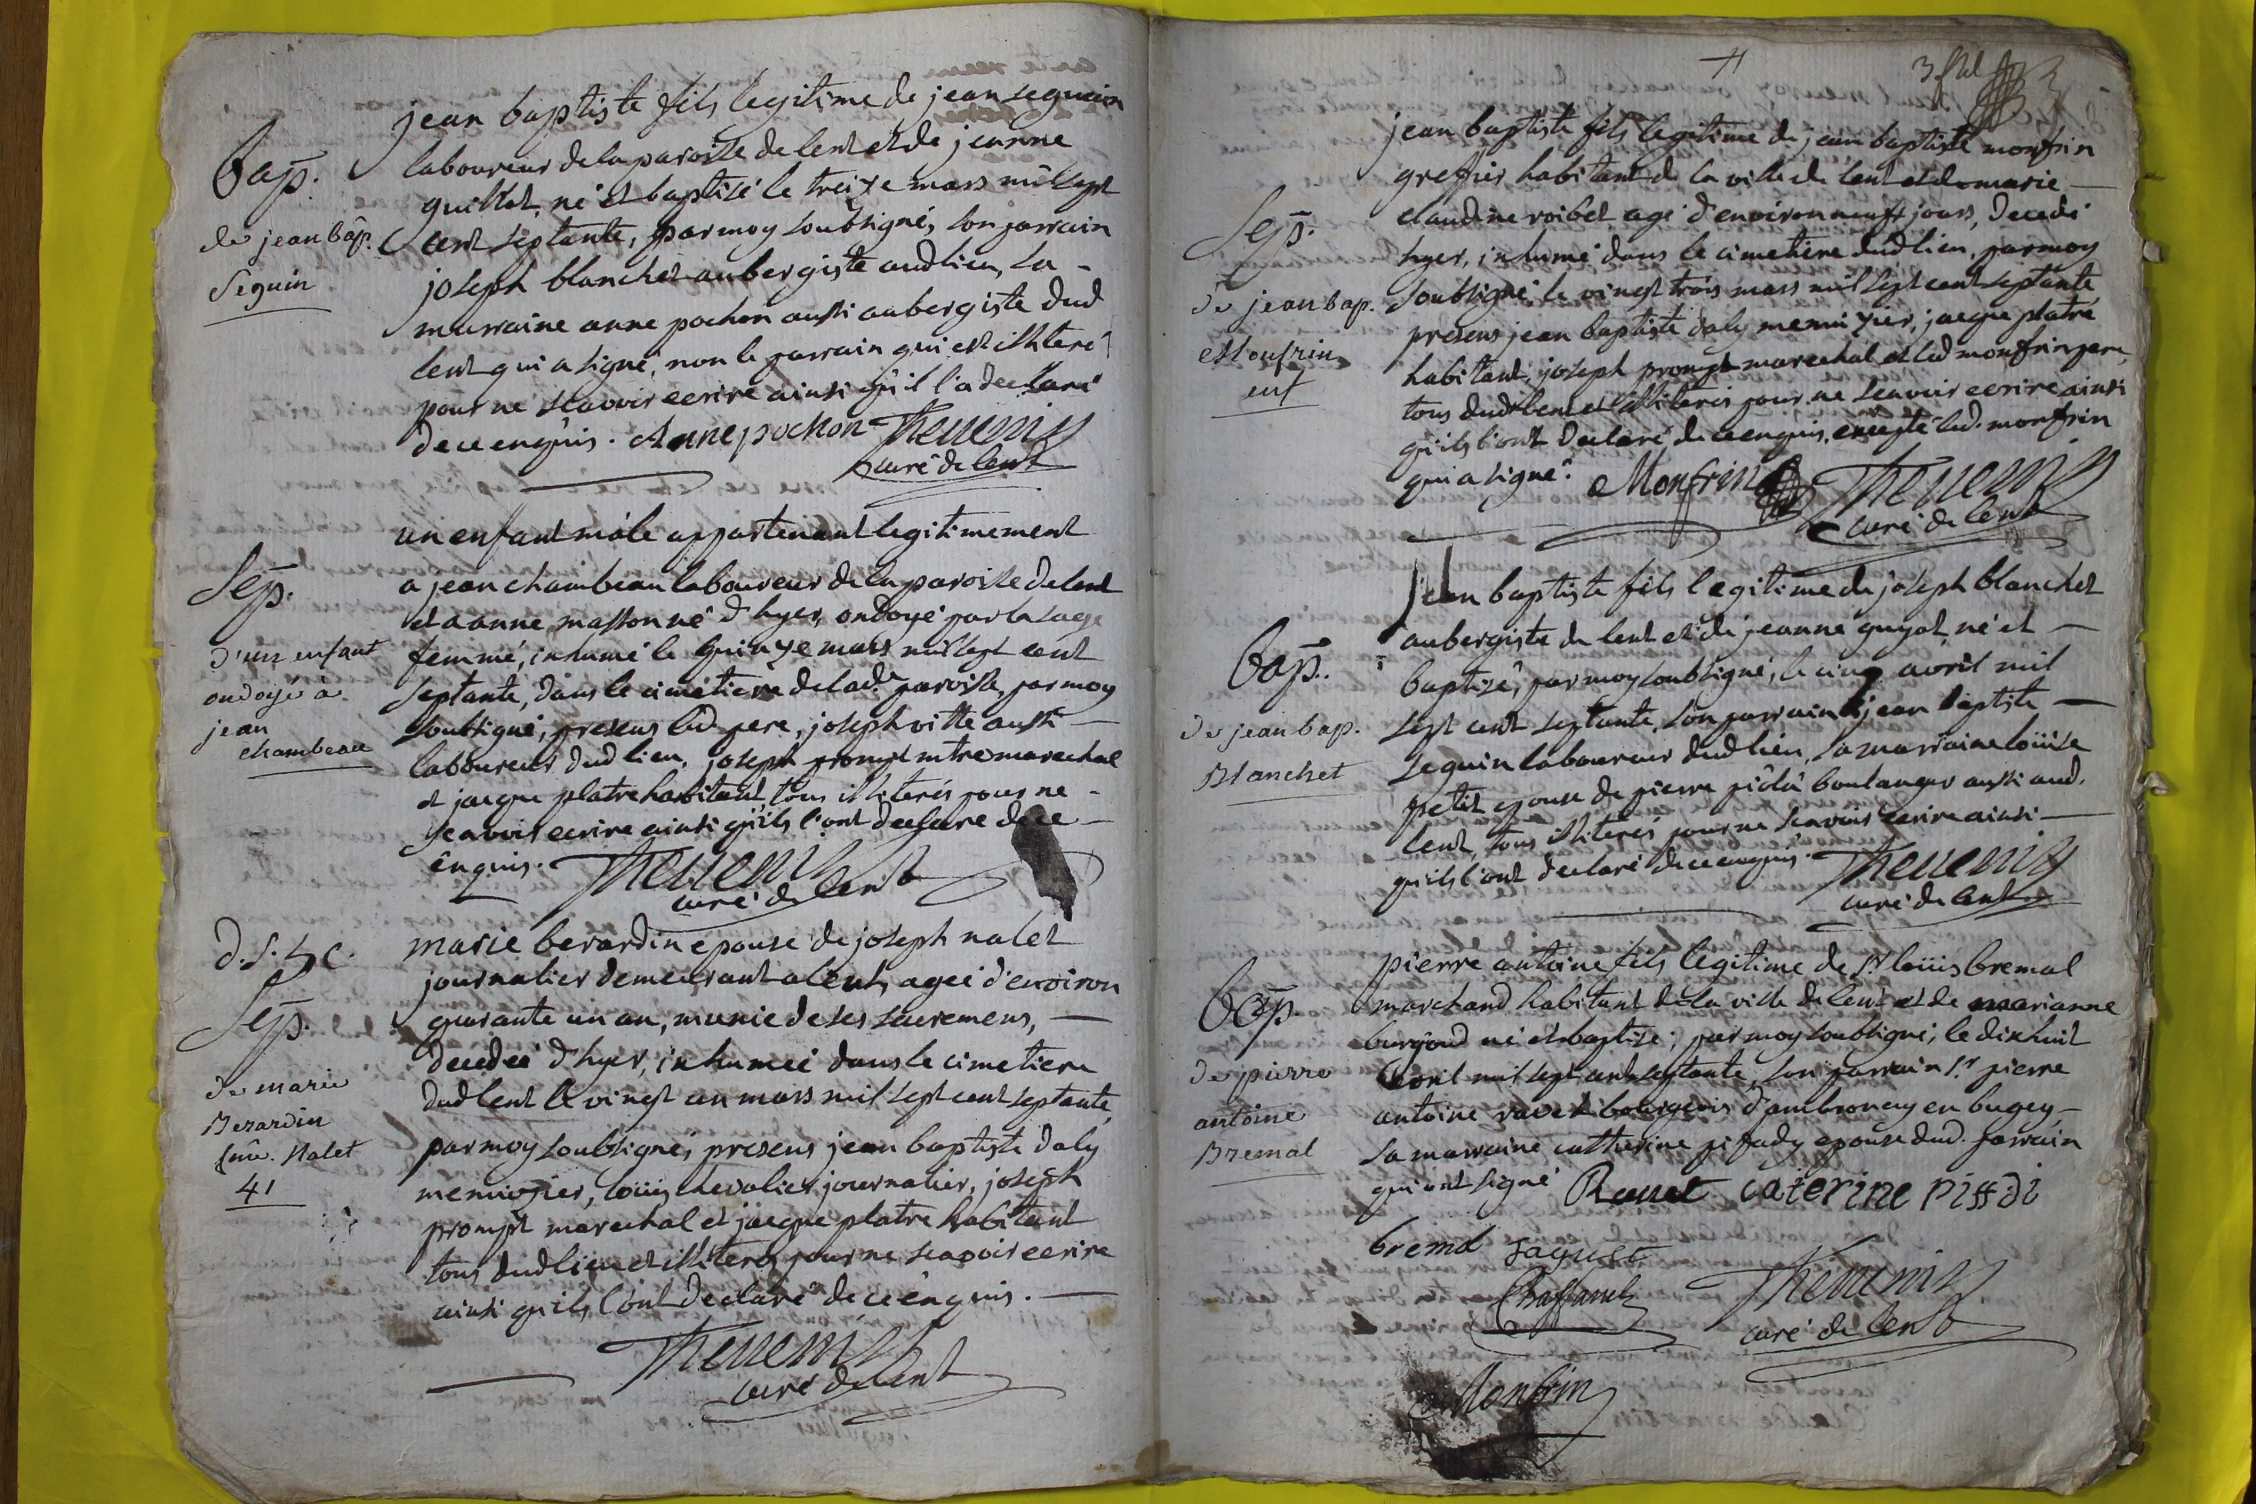 jean baptiste fils legitime de jean seguin
Bap. laboureur de la paroisse de lent et de jeanne
guillot, né et baptisé le treize mars mil sept
de jean bap. cent septante, par moy soubsigné, son parrain
Seguin joseph blanchet aubergiste audlieu, sa
marraine anne pochon aussi aubergiste dud
lent qui a signé, non le parrain qui est illiteré
pour ne scavoir ecrire ainsi qu'il l'a declaré
de ce enquis. Anne pochon Thevenin
curé de lent
un enfant mâle appartenant legitimement
Sep. a jean chambeau laboureur de la paroisse de lent
et a anne masson né d'hyer, ondoyé par la sage
d'un enfant femme, inhumé le quinze mars mil sept cent
ondoyé à septante, dans le cimetiere de lad.e paroisse, par moy
jean soubsigné, presens led pere, joseph vitte aussi
chambeau laboureur dud lieu, joseph prompt mtre marechal
et jacque platre habitant, tous illiterés pour ne
scavoir ecrire ainsi qu'ils l'ont declaré de ce
enquis. Thevenin
curé de lent
d. s. c. marie berardin epouse de joseph nalet
journalier demeurant a lent, agée d'environ
Sep. quarante un an, munie de ses sacremens,
decedée d'hyer, inhumée dans le cimetiere
de marie dud lent le vingt un mars mil sept cent septante,
Berardin par moy soubsigné, presens jean baptiste daly
fme. Nalet menuisier, loüis chevalier journalier, joseph
41 prompt marechal et jacque platre habitant
tous dud lieu et illiterés pour ne scavoir ecrire
ainsi qu'ils l'ont declaré de ce enquis.
Thevenin
curé de lent
3
jean baptiste fils legitime de jean baptiste monfrin
greffier habitant de la ville de lent et de marie
Sep. claudine roibet agé d'environ neuf jours, decedé
hyer, inhumé dans le cimetiere dud lieu, par moy
de jean bap. soubsigné le vingt trois mars mil sept cent septante
Monfrin presens jean baptiste daly menuizier, jacque platre
enf habitant, joseph prompt marechal et led monfrin pere,
tous dud lent et illiterés pour ne scavoir ecrire ainsi
qu'ils l'ont declaré de ce enquis, excepté led. monfrin
qui a signé. Monfrin Thevenin
curé de lent
Jean baptiste fils legitime de joseph blanchet
Bap. aubergiste de lent et de jeanne guyot né et
baptisé, par moy soubsigné, le cinq avril mil
de jean bap. sept cent septante, son parrain jean baptiste
Blanchet seguin laboureur dud lieu, sa marraine loüise
petit epouse de pierre boulanger aussi aud.
lent, tous illiterés pour ne scavoir ecrire ainsi
qu'ils l'ont declaré de ce enquis. Thevenin
curé de lent
pierre antoine fils legitime de sr. loüis bremal
Bap. marchand habitant de la ville de lent et de marianne
burgoud né et baptisé, par moy soubsigné, le dixhuit
de pierre avril mil sept cent septante, son parrain sr. pierre
antoine antoine ravet bourgeois d'ambronay en bugey
Bremal sa marraine catherine pifady epouse dud. parrain
qui ont signé Ravet caterine pissdi
bremal
Chaffanel Thevenin
curé de lent
Monfrin